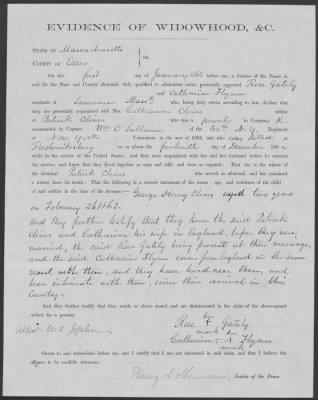 EVIDENCE OF WIDOWHOOD, &C.
STATE OF Massachusetts
COUNTY OF Essex } ss.
On this first day of January 1863 before me, a Justice of the Peace in
and for the State and County aforesaid, duly qualified to administer oaths, personally appeared Rose Gately
and Catharine Flynn
residents of Lawrence Mass. who, being duly sworn according to law, declare that
they are personally acquainted with Mrs. Catharine Clines widow
of Patrick Clines who was a private in Company K
commanded by Captain Wm O'Sullivan of the N.Y. Regiment
of New York Volunteers in the war of 1861, and was killed at
Fredericksburg on or about the day of December 1862
while in the service of the United States; and they were acquainted with her and her husband before he entered
the service, and knew that they lived together as man and wife, and were so reputed: That she is the widow of
the aforesaid Patrick Clines who is deceased, and has remained
a widow since his death: That the following is a correct statement of the name, age and residence of the child
of said soldier at the time of his decease:— George Henry Clines aged two years
on February 26 1863.
and they further certify that they knew the said Patrick
Clines and Catharine his wife in England, before they were
married, the said Rose Gately being present at their marriage,
and the said Catharine Flynn came from England in the same
vessel with them, and they have lived near them, and
been intimate with them, since their arrival in this
Country.
And they further testify that they reside as above stated, and are disinterested in the claim of the above-named
widow for a pension.
Attest W. O. Joplin
Rose her + mark Gately
Catharine her + mark Flynn
Sworn to and subscribed before me, and I certify that I am not interested in said claim, and that I believe the
affiants to be credible witnesses.
Justice of the Peace